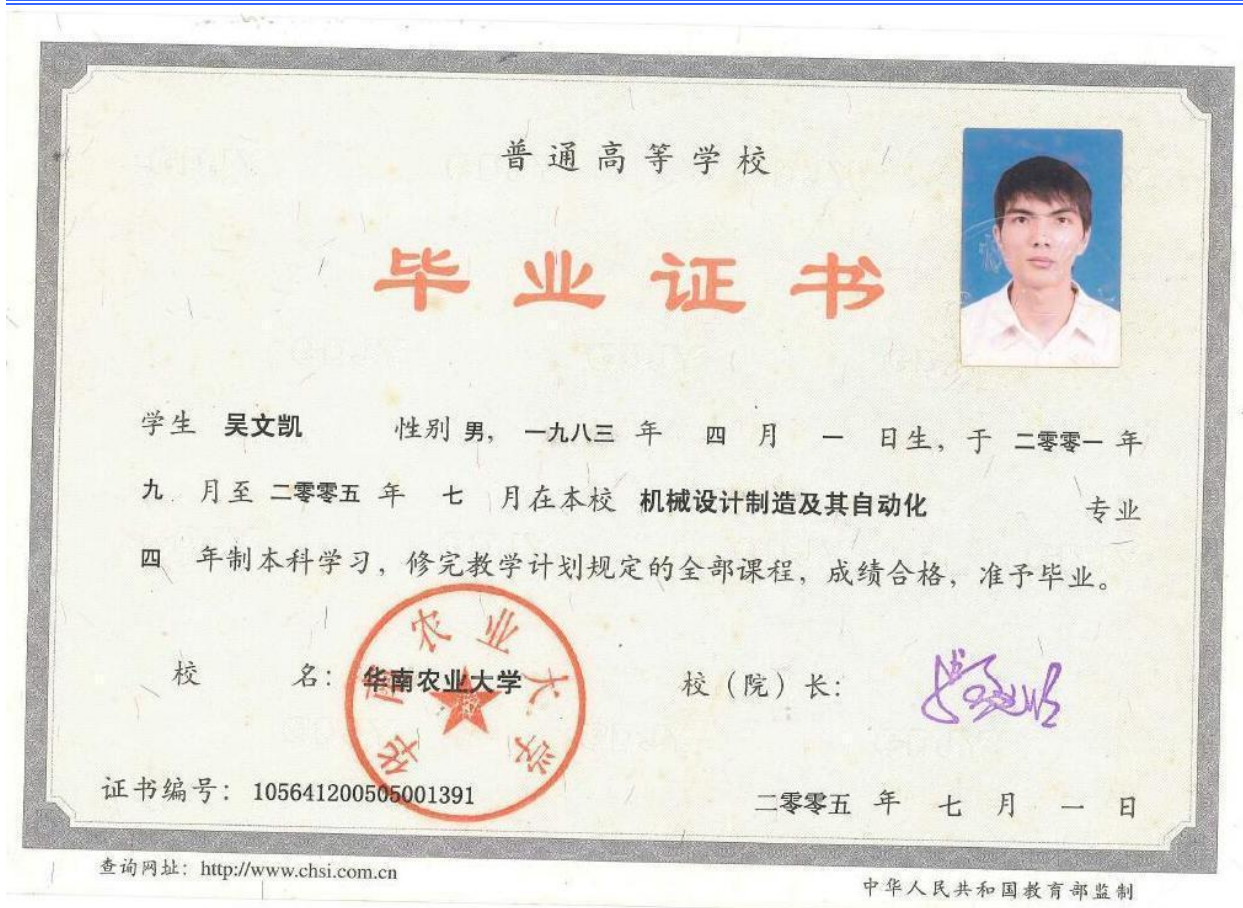 普通高等学校
毕业证书
学生 吴文凯 性别 男, 一九八三 年 四 月 一 日生, 于 二零零一 年
九 月至 二零零五 年 七 月在本校 机械设计制造及其自动化 专业
四 年制本科学习, 修完教学计划规定的全部课程, 成绩合格, 准予毕业。
校 名: 华南农业大学 校（院）长:
华南农业大学
证书编号: 105641200505001391 二零零五 年 七 月 一 日
查询网址: http://www.chsi.com.cn
中华人民共和国教育部监制